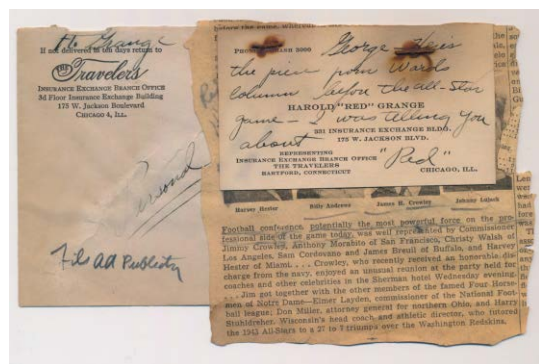 H. Grange
If not delivered in ten days return to
The Travelers
INSURANCE EXCHANGE BRANCH OFFICE
3d Floor Insurance Exchange Building
175 W. Jackson Boulevard
CHICAGO 4, ILL.
Personal
File Ad Publicity
George - Here's
the piece from Wards
column before the all-star
HAROLD "RED" GRANGE
game - I was telling you
331 INSURANCE EXCHANGE BLDG.
175 W. JACKSON BLVD.
about
REPRESENTING
INSURANCE EXCHANGE BRANCH OFFICE
"Red"
THE TRAVELERS
HARTFORD, CONNECTICUT
CHICAGO, ILL.
Harvey Hester Billy Andrews James H. Crowley Johnny Lujack
Football conference, potentially the most powerful force on the pro-
fessional side of the game today, was well represented by Commissioner
Jimmy Crowley, Anthony Morabito of San Francisco, Christy Walsh of
Los Angeles, Sam Cordovano and James Breuil of Buffalo, and Harvey
Hester of Miami. . . . Crowley, who recently received an honorable dis-
charge from the navy, enjoyed an unusual reunion at the party held for
coaches and other celebrities in the Sherman hotel Wednesday evening.
. . . Jim got together with the other members of the famed Four Horse-
men of Notre Dame—Elmer Layden, commissioner of the National Foot-
ball league; Don Miller, attorney general for northern Ohio, and Harry
Stuhldreher, Wisconsin's head coach and athletic director, who tutored
the 1943 All-Stars to a 27 to 7 triumph over the Washington Redskins.